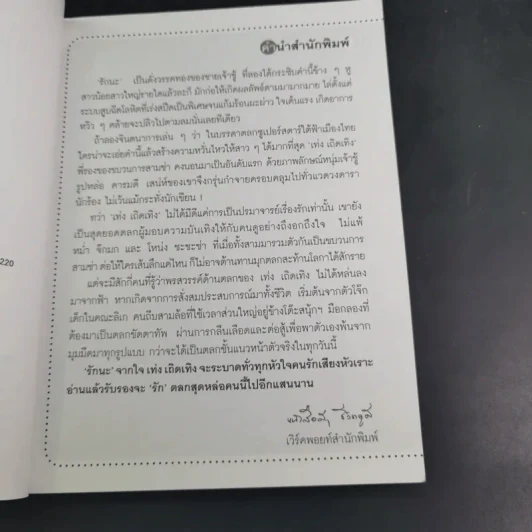 คำนำสำนักพิมพ์
'รักนะ' เป็นดั่งวรรคทองของชายเจ้าชู้ ที่ลองได้กระซิบคำนี้ข้าง ๆ หู
สาวน้อยสาวใหญ่รายใดแล้วละก็ มักก่อให้เกิดผลลัพธ์ตามมามากมาย ไล่ตั้งแต่
ระบบสูบฉีดโลหิตที่เร่งสปีดเป็นพิเศษจนแก้มร้อนผะผ่าว ใจเต้นแรง เกิดอาการ
หวิว ๆ คล้ายจะปลิวไปตามลมนั่นเลยทีเดียว
ถ้าลองจินตนาการเล่น ๆ ว่า ในบรรดาตลกซูเปอร์สตาร์ใต้ฟ้าเมืองไทย
ใครน่าจะเอ่ยคำนี้แล้วสร้างความหวั่นไหวให้สาว ๆ ได้มากที่สุด 'เท่ง เถิดเทิง'
พี่รองของขบวนการสามช่า คงนอนมาเป็นอันดับแรก ด้วยภาพลักษณ์หนุ่มเจ้าชู้
รูปหล่อ คารมดี เสน่ห์ของเขาจึงกรุ่นกำจายครอบคลุมไปทั่วแวดวงดารา
นักร้อง ไม่เว้นแม้กระทั่งนักเขียน !
ทว่า 'เท่ง เถิดเทิง' ไม่ได้มีดีแค่การเป็นปรมาจารย์เรื่องรักเท่านั้น เขายัง
เป็นสุดยอดตลกผู้มอบความบันเทิงให้กับคนดูอย่างถึงอกถึงใจ ไม่แพ้
หม่ำ จ๊กมก และ โหน่ง ชะชะช่า ที่เมื่อทั้งสามมารวมตัวกันเป็นขบวนการ
สามช่า ต่อให้ใครเส้นลึกแค่ไหน ก็ไม่อาจต้านทานมุกตลกสะท้านโลกาได้สักราย
แต่จะมีสักกี่คนที่รู้ว่าพรสวรรค์ด้านตลกของ เท่ง เถิดเทิง ไม่ได้หล่นลง
มาจากฟ้า หากเกิดจากการสั่งสมประสบการณ์มาทั้งชีวิต เริ่มต้นจากตัวโจ๊ก
เด็กในคณะลิเก คนถีบสามล้อที่ใช้เวลาส่วนใหญ่อยู่ข้างโต๊ะสนุ้กฯ มือกลองที่
ต้องมาเป็นตลกขัดตาทัพ ผ่านการกลืนเลือดและต่อสู้เพื่อพาตัวเองพ้นจาก
มุมมืดมาทุกรูปแบบ กว่าจะได้เป็นตลกชั้นแนวหน้าตัวจริงในทุกวันนี้
'รักนะ' จากใจ เท่ง เถิดเทิง จะระบาดทั่วทุกหัวใจคนรักเสียงหัวเราะ
อ่านแล้วรับรองจะ 'รัก' ตลกสุดหล่อคนนี้ไปอีกแสนนาน
เวิร์คพอยท์สำนักพิมพ์
220